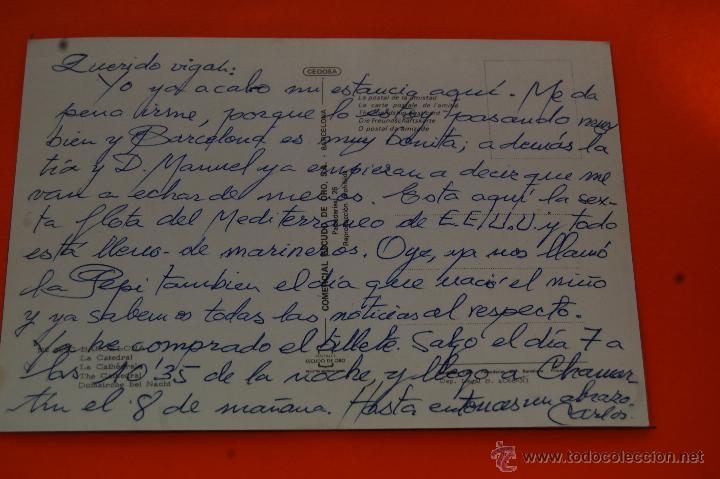 Querido vigah:
CEDOSA
Yo ya acabo mi estancia aquí. Me da
La postal de la amistad
La carte postale de l'amitié
Die Freundschaftskarte
O postal da amizade
pena irme, porque lo estoy pasando muy
bien y Barcelona es muy bonita; además la
tía y D. Manuel ya empiezan a decir que me
van a echar de menos. Está aquí la sex-
ta flota del Mediterráneo de E.E.U.U y todo
está lleno de marineros. Oye, ya nos llamó
la Pepi tambien el día que nació el niño
y ya sabemos todas las noticias al respecto.
Ya he comprado el billete. Salgo el día 7 a
las de la noche, y llego a Chamar
tín el 8 de mañana. Hasta entonces un abrazo
Carlos.
COMERCIAL ESCUDO DE ORO, S.A. - BARCELONA
Reproducción prohibida
ESCUDO DE ORO
La Catedral
La Cathédrale
The Cathedral
Domkirche bei Nacht
© www.todocoleccion.net